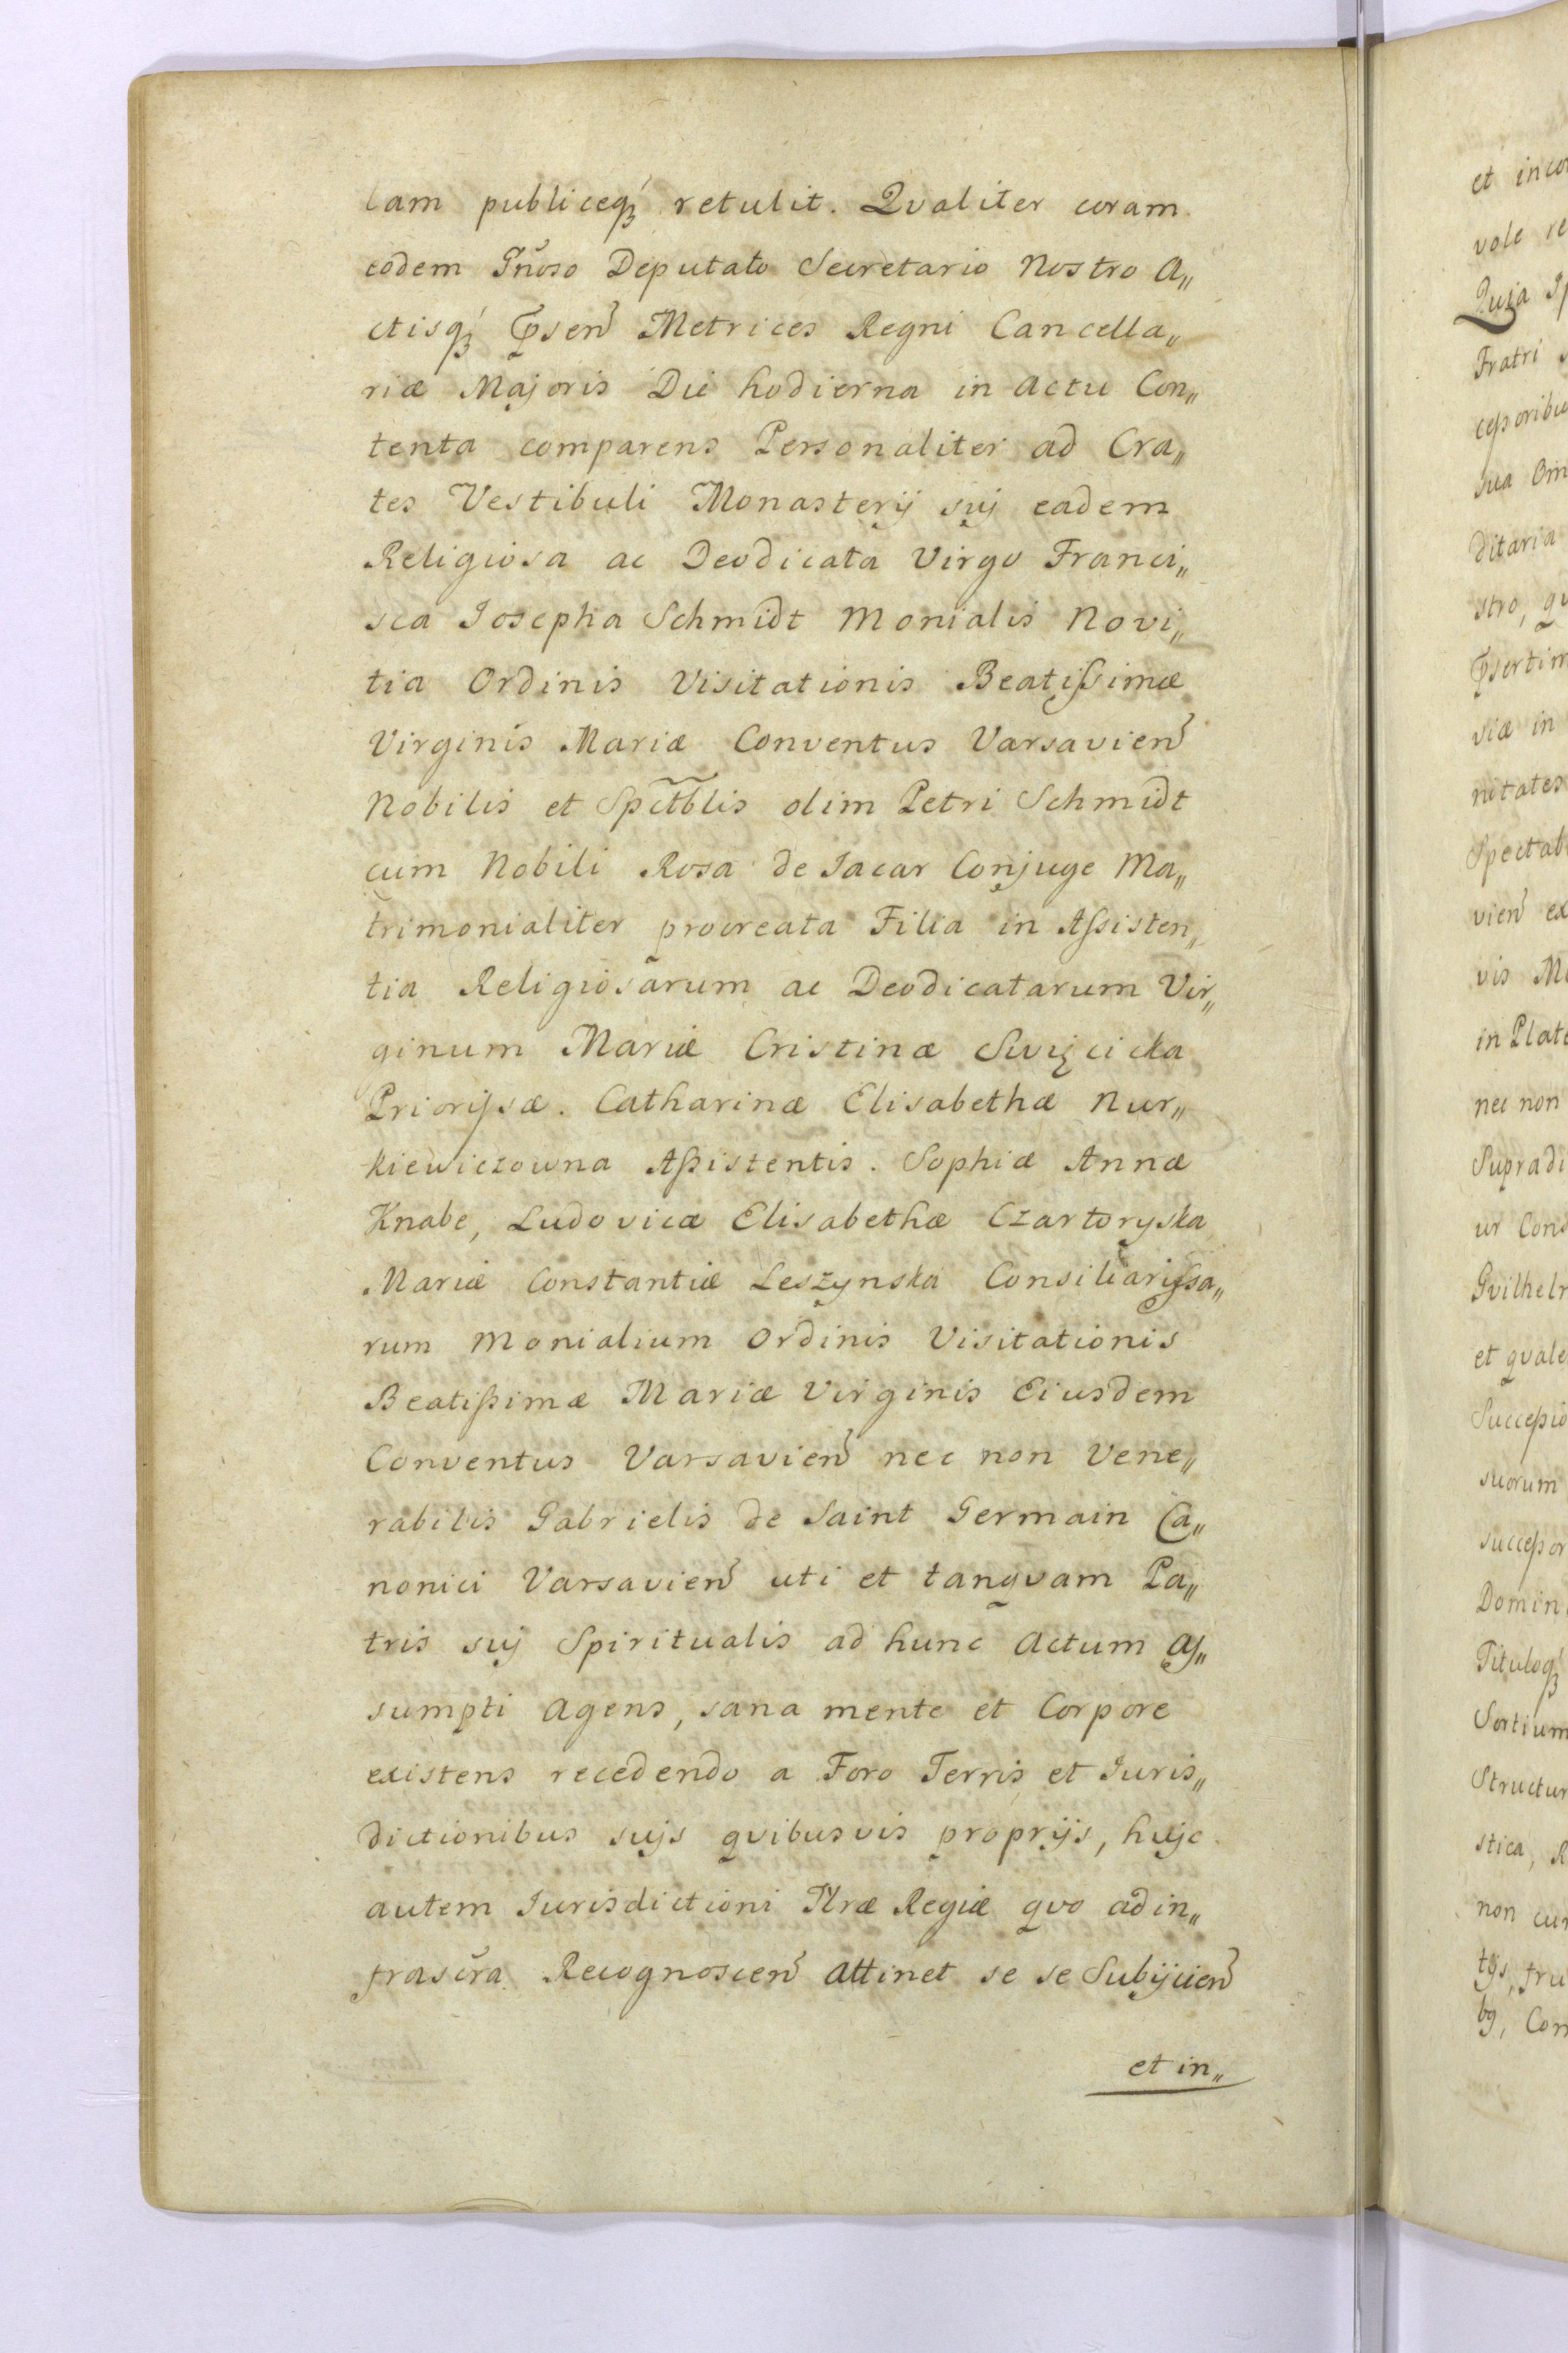 lam publiceq́; retulit. Qvaliter coram
eodem Gnoso Deputato Secretario Nostro A„
ctisq́; Prsen̄ Metrices Regni Cancella„
riæ Majoris Die hodierna in Actu Con„
tenta comparens Personaliter ad Cra„
tes Vestibuli Monasterij suj eadem
Religiosa ac Deodicata Virgo Franci„
sca Josepha Schmidt Monialis Novi„
tia Ordinis Visitationis Beatissimæ
Virginis Mariæ Conventus Varsavien̄
Nobilis et Spctblis olim Petri Schmidt
cum Nobili Rosa de Jacar Conjuge Ma„
trimonialiter procreata Filia in Assisten„
tia Religiosarum ac Deodicatarum Vir„
ginum Mariæ Cristinæ Swięcicka
Priorissæ. Catharinæ Elisabethæ Nur„
kiewiczowna Assistentis. Sophiæ Annæ
Knabe, Ludovicæ Elisabethæ Czartoryska
Mariæ Constantiæ Leszynska Consiliarissa„
rum Monialium Ordinis Visitationis
Beatissimæ Mariæ Virginis Eiusdem
Conventus Varsavien̄ nec non Vene„
rabilis Gabrielis de Saint Germain Ca„
nonici Varsavien̄ uti et tanqvam Pa„
tris suj Spiritualis ad hunc Actum As„
sumpti Agens, sana mente et Corpore
existens recedendo a Foro Terris et Juris„
dictionibus sujs qvibusvis proprijs, hujc
autem Jurisdictioni Nræ Regiæ qvo ad in„
frascr̄a Recognoscen̄ attinet se se Subijcien̄
et in„
et inco
vole re
Quia
Fratri
cessoribus
sua Om
ditaria
stro, qv
Prsertim
viæ in
nitates
Spectab
vien̄ ex
vis M
in Plate
nec non
Supradi
ur Cons
Gvilhel
et qvale
Successio
suorum
successor
Domin
Tituloq́;
Sortium
Structur
stica, R
non cu
tijs, fru
bg, Con